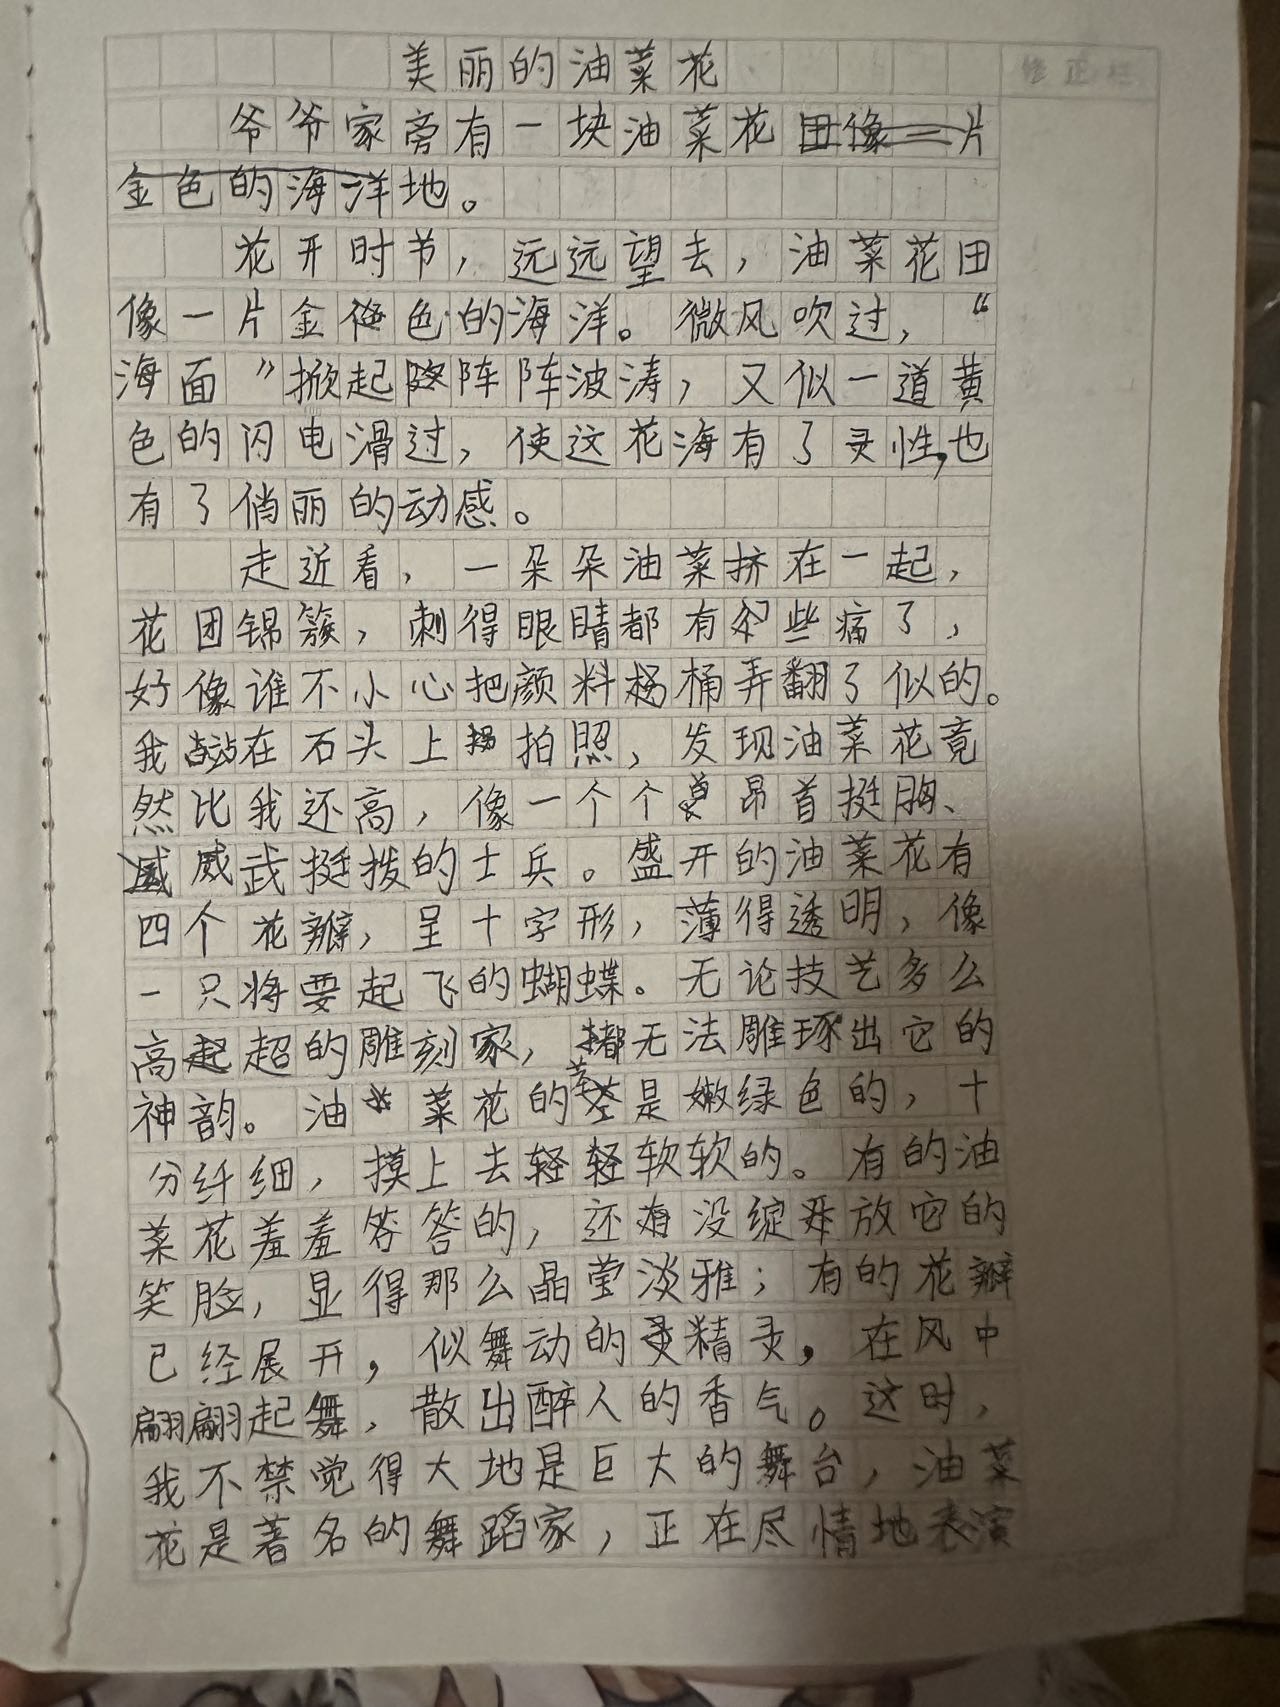 美丽的油菜花
修正栏
爷爷家旁有一块油菜花田像一片
金色的海洋地。
花开时节，远远望去，油菜花田
像一片金色的海洋。微风吹过，“
海面”掀起阵阵波涛，又似一道黄
色的闪电滑过，使这花海有了灵性，也
有了俏丽的动感。
走近看，一朵朵油菜挤在一起，
花团锦簇，刺得眼睛都有些痛了，
好像谁不小心把颜料桶弄翻了似的。
我站在石头上拍照，发现油菜花竟
然比我还高，像一个个昂首挺胸、
威武挺拨的士兵。盛开的油菜花有
四个花瓣，呈十字形，薄得透明，像
一只将要起飞的蝴蝶。无论技艺多么
高超的雕刻家，都无法雕琢出它的
神韵。油菜花的茎是嫩绿色的，十
分纤细，摸上去轻轻软软的。有的油
菜花羞羞答答的，还没绽放它的
笑脸，显得那么晶莹淡雅；有的花瓣
已经展开，似舞动的精灵，在风中
翩翩起舞，散出醉人的香气。这时，
我不禁觉得大地是巨大的舞台，油菜
花是著名的舞蹈家，正在尽情地表演